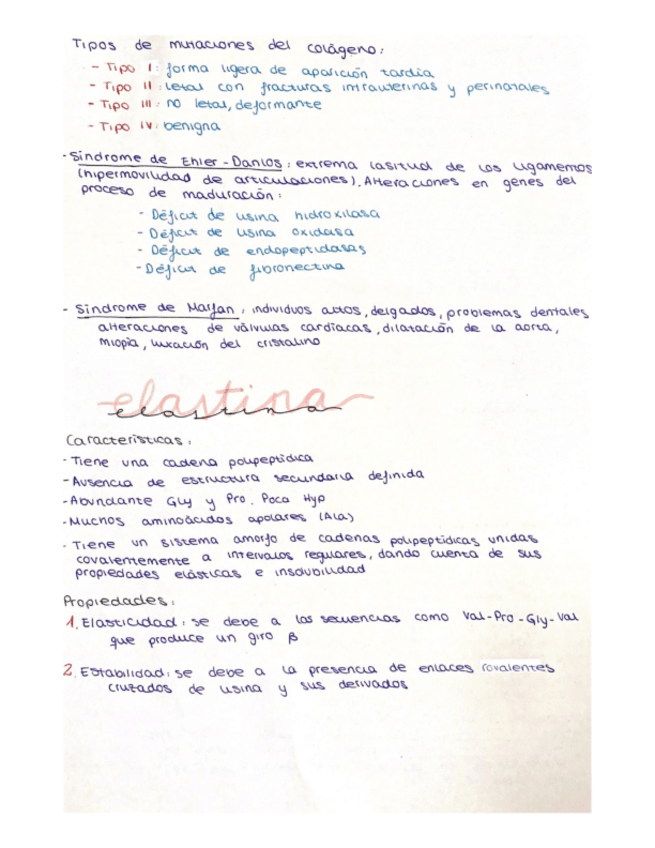 Tipos de mutaciones del colágeno:
- Tipo I: forma ligera de aparición tardía
- Tipo II: letal con fracturas intrauterinas y perinatales
- Tipo III: no letal, deformante
- Tipo IV: benigna
- Síndrome de Ehler-Danlos: extrema lasitud de los ligamentos
(hipermovilidad de articulaciones). Alteraciones en genes del
proceso de maduración:
- Déficit de lisina hidroxilasa
- Déficit de lisina oxidasa
- Déficit de endopeptidasas
- Déficit de fibronectina
- Síndrome de Marfan: individuos altos, delgados, problemas dentales
alteraciones de válvulas cardíacas, dilatación de la aorta,
miopía, luxación del cristalino
elastina
Características:
- Tiene una cadena polipeptídica
- Ausencia de estructura secundaria definida
- Abundante Gly y Pro. Poca Hyp
- Muchos aminoácidos apolares (Ala)
- Tiene un sistema amorfo de cadenas polipeptídicas unidas
covalentemente a intervalos regulares, dando cuenta de sus
propiedades elásticas e insolubilidad
Propiedades:
1. Elasticidad: se debe a las secuencias como Val-Pro-Gly-Val
que produce un giro β
2. Estabilidad: se debe a la presencia de enlaces covalentes
cruzados de lisina y sus derivados